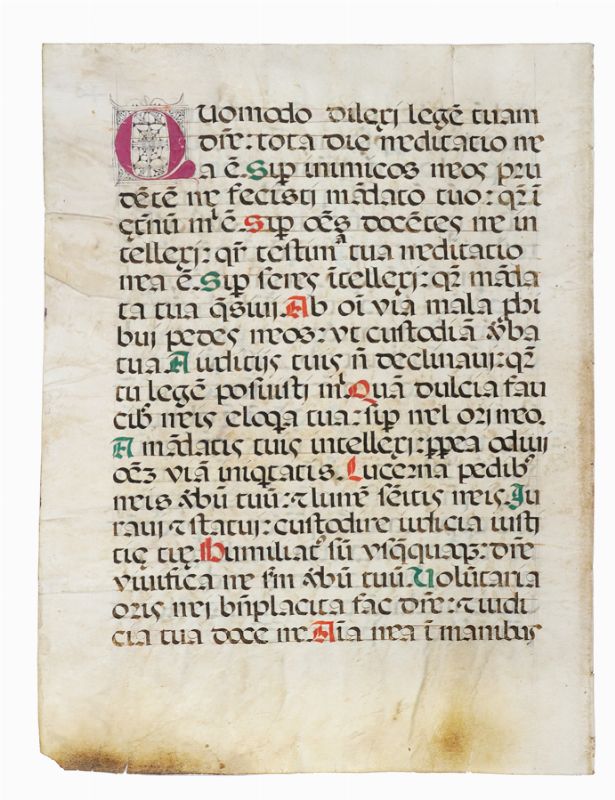 Quomodo dilexi legē tuam
dñe: tota die meditatio me
a ē. Sup̄ inimicos meos pru
dētē me fecisti mādato tuo: qr̄ ī
eternū mͥ ē Sup̄ oēs docētes me in
tellexi: qr̄ testimͣ tua meditatio
mea ē. Sup̄ senes ītellexi: qr̄ māda
ta tua q̄siui. Ab oī via mala phi
bui pedes meos: vt custodiā v̾ba
tua. A iudicijs tuis nō declinaui: qr̄
tu legē posuisti mͥ. Quā dulcia fau
cib; meis eloqa tua: sup̄ mel ori meo.
A mādatis tuis intellexi: ꝓpea odiui
oēz viā iniqtatis. Lucerna pedib;
meis v̾bū tuū: ⁊ lumē sēitis meis. Iu
raui ⁊ statui: custodire iudicia iusti
tię tuę. Humiliat9 sū vsq̄quaqz: dñe
viuifica me s̄m v̾bū tuū. Volūtaria
oris mei bn̄placita fac dñe: ⁊ iudi
cia tua doce me. Aīa mea ī manibus